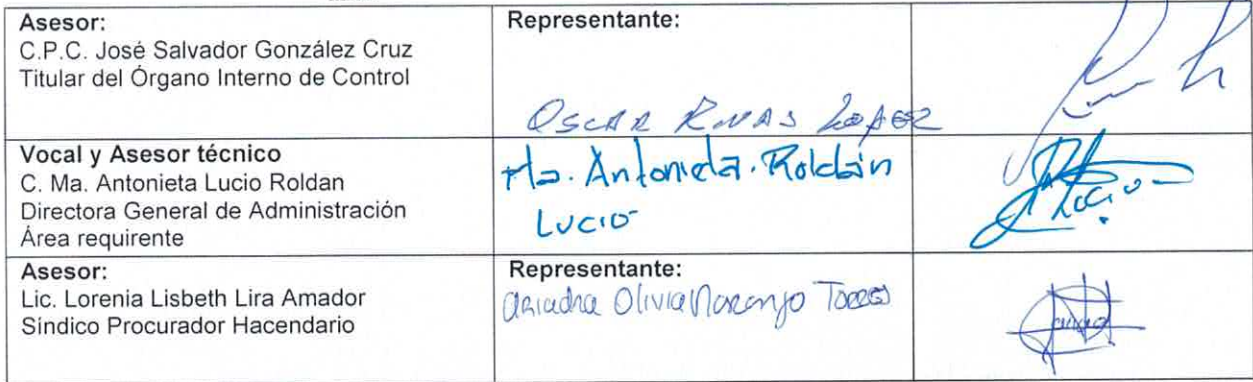 Asesor:
C.P.C. José Salvador González Cruz
Titular del Órgano Interno de Control
Representante:
OSCAR RIVAS LOPEZ
Vocal y Asesor técnico
C. Ma. Antonieta Lucio Roldan
Directora General de Administración
Área requirente
Ma. Antonieta. Roldán
Lucio
Lucio
Asesor:
Lic. Lorenia Lisbeth Lira Amador
Síndico Procurador Hacendario
Representante:
Ariadna Olivia Naranjo Torres